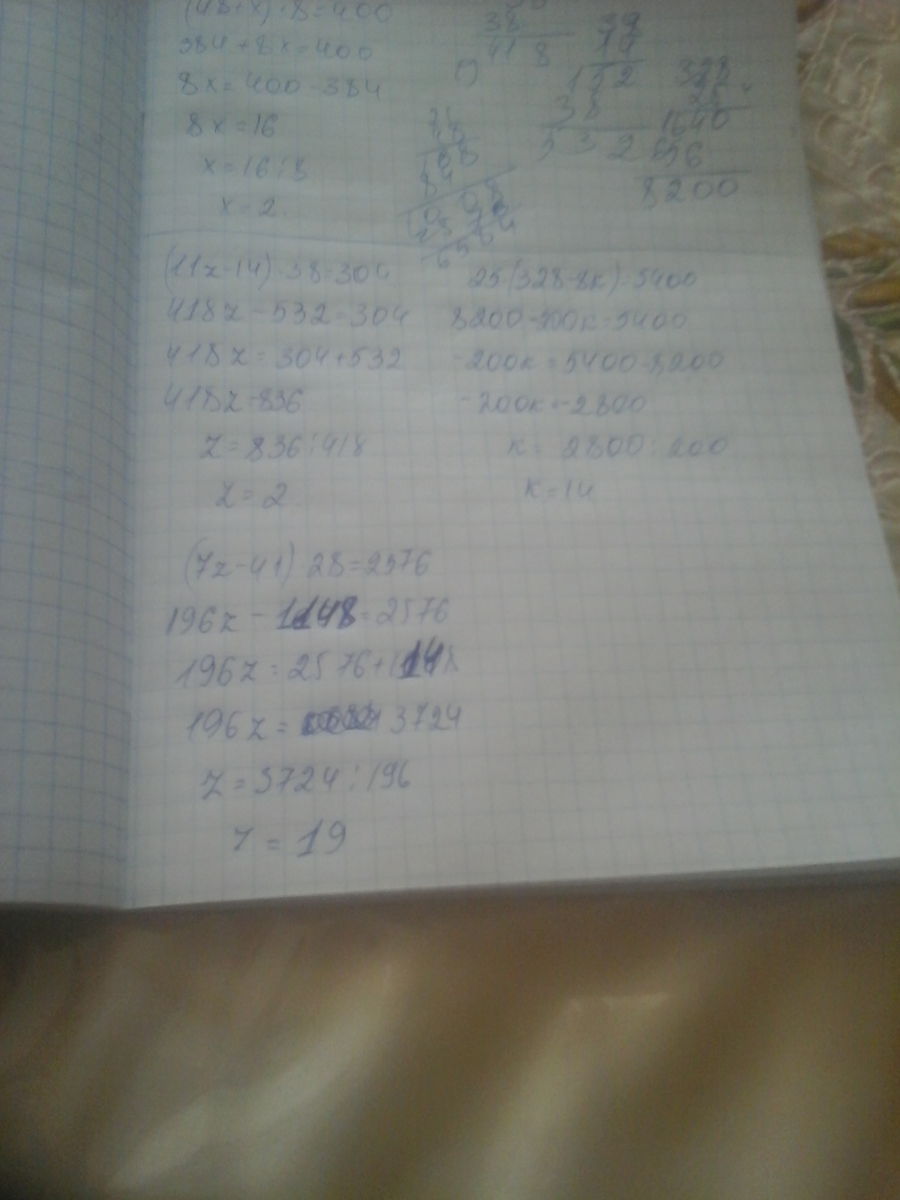 (48+x)·8=400
384+8x=400
8x=400-384
8x=16
x=16:8
x=2.
38
41 8
152
38
5 3 2
328
1640
656
8200
(11z-14)·38=304
418z-532=304
418z=304+532
418z=836
z=836:418
z=2.
25·(328-8к)=5400
8200-200к=5400
-200к=5400-8200
-200к=-2800
к=2800:200
к=14
(7z-41)·28=2576
196z-1148=2576
196z=2576+1148
196z=3724
z=3724:196
z=19